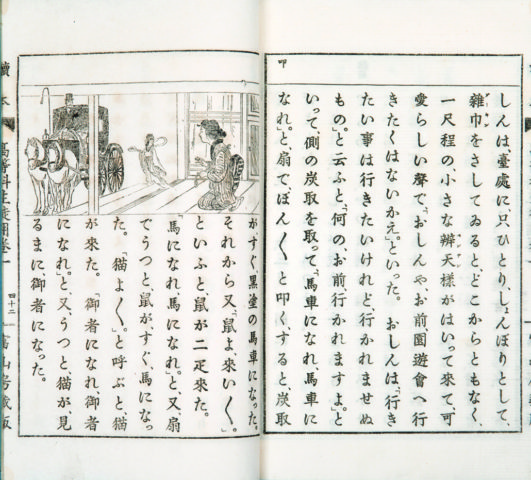 叩
しんは、臺處に、只ひとり、しょんぼりとして、
雜巾をさしてゐると、どこからともなく、
一尺程の、小さな辨天樣がはいって來て、可
愛らしい聲で、「おしんやお前、園遊會へ行
きたくはないかえ。」といった。 おしんは、「行き
たい事は行きたいけれど、行かれませぬ
もの。」と云ふと、「何の、お前、行かれますよ。」と
いって、側の炭取を取って、「馬車に
なれ。」と、扇で、ぽん〱と叩く、すると、炭取
が、すぐ、黑塗の馬車になった。
それから又、「鼠よ、來い〱。」
といふと、鼠が二疋來た。
「馬になれ、馬になれ。」と、又、扇
でうつと、鼠が、すぐ、馬になっ
た。「猫よ〱。」と呼ぶと、猫
が來た。「御者になれ、御者
になれ。」と、又、うつと、猫が、見
るまに、御者になった。
讀本 高等科 四十二 冨山房藏版